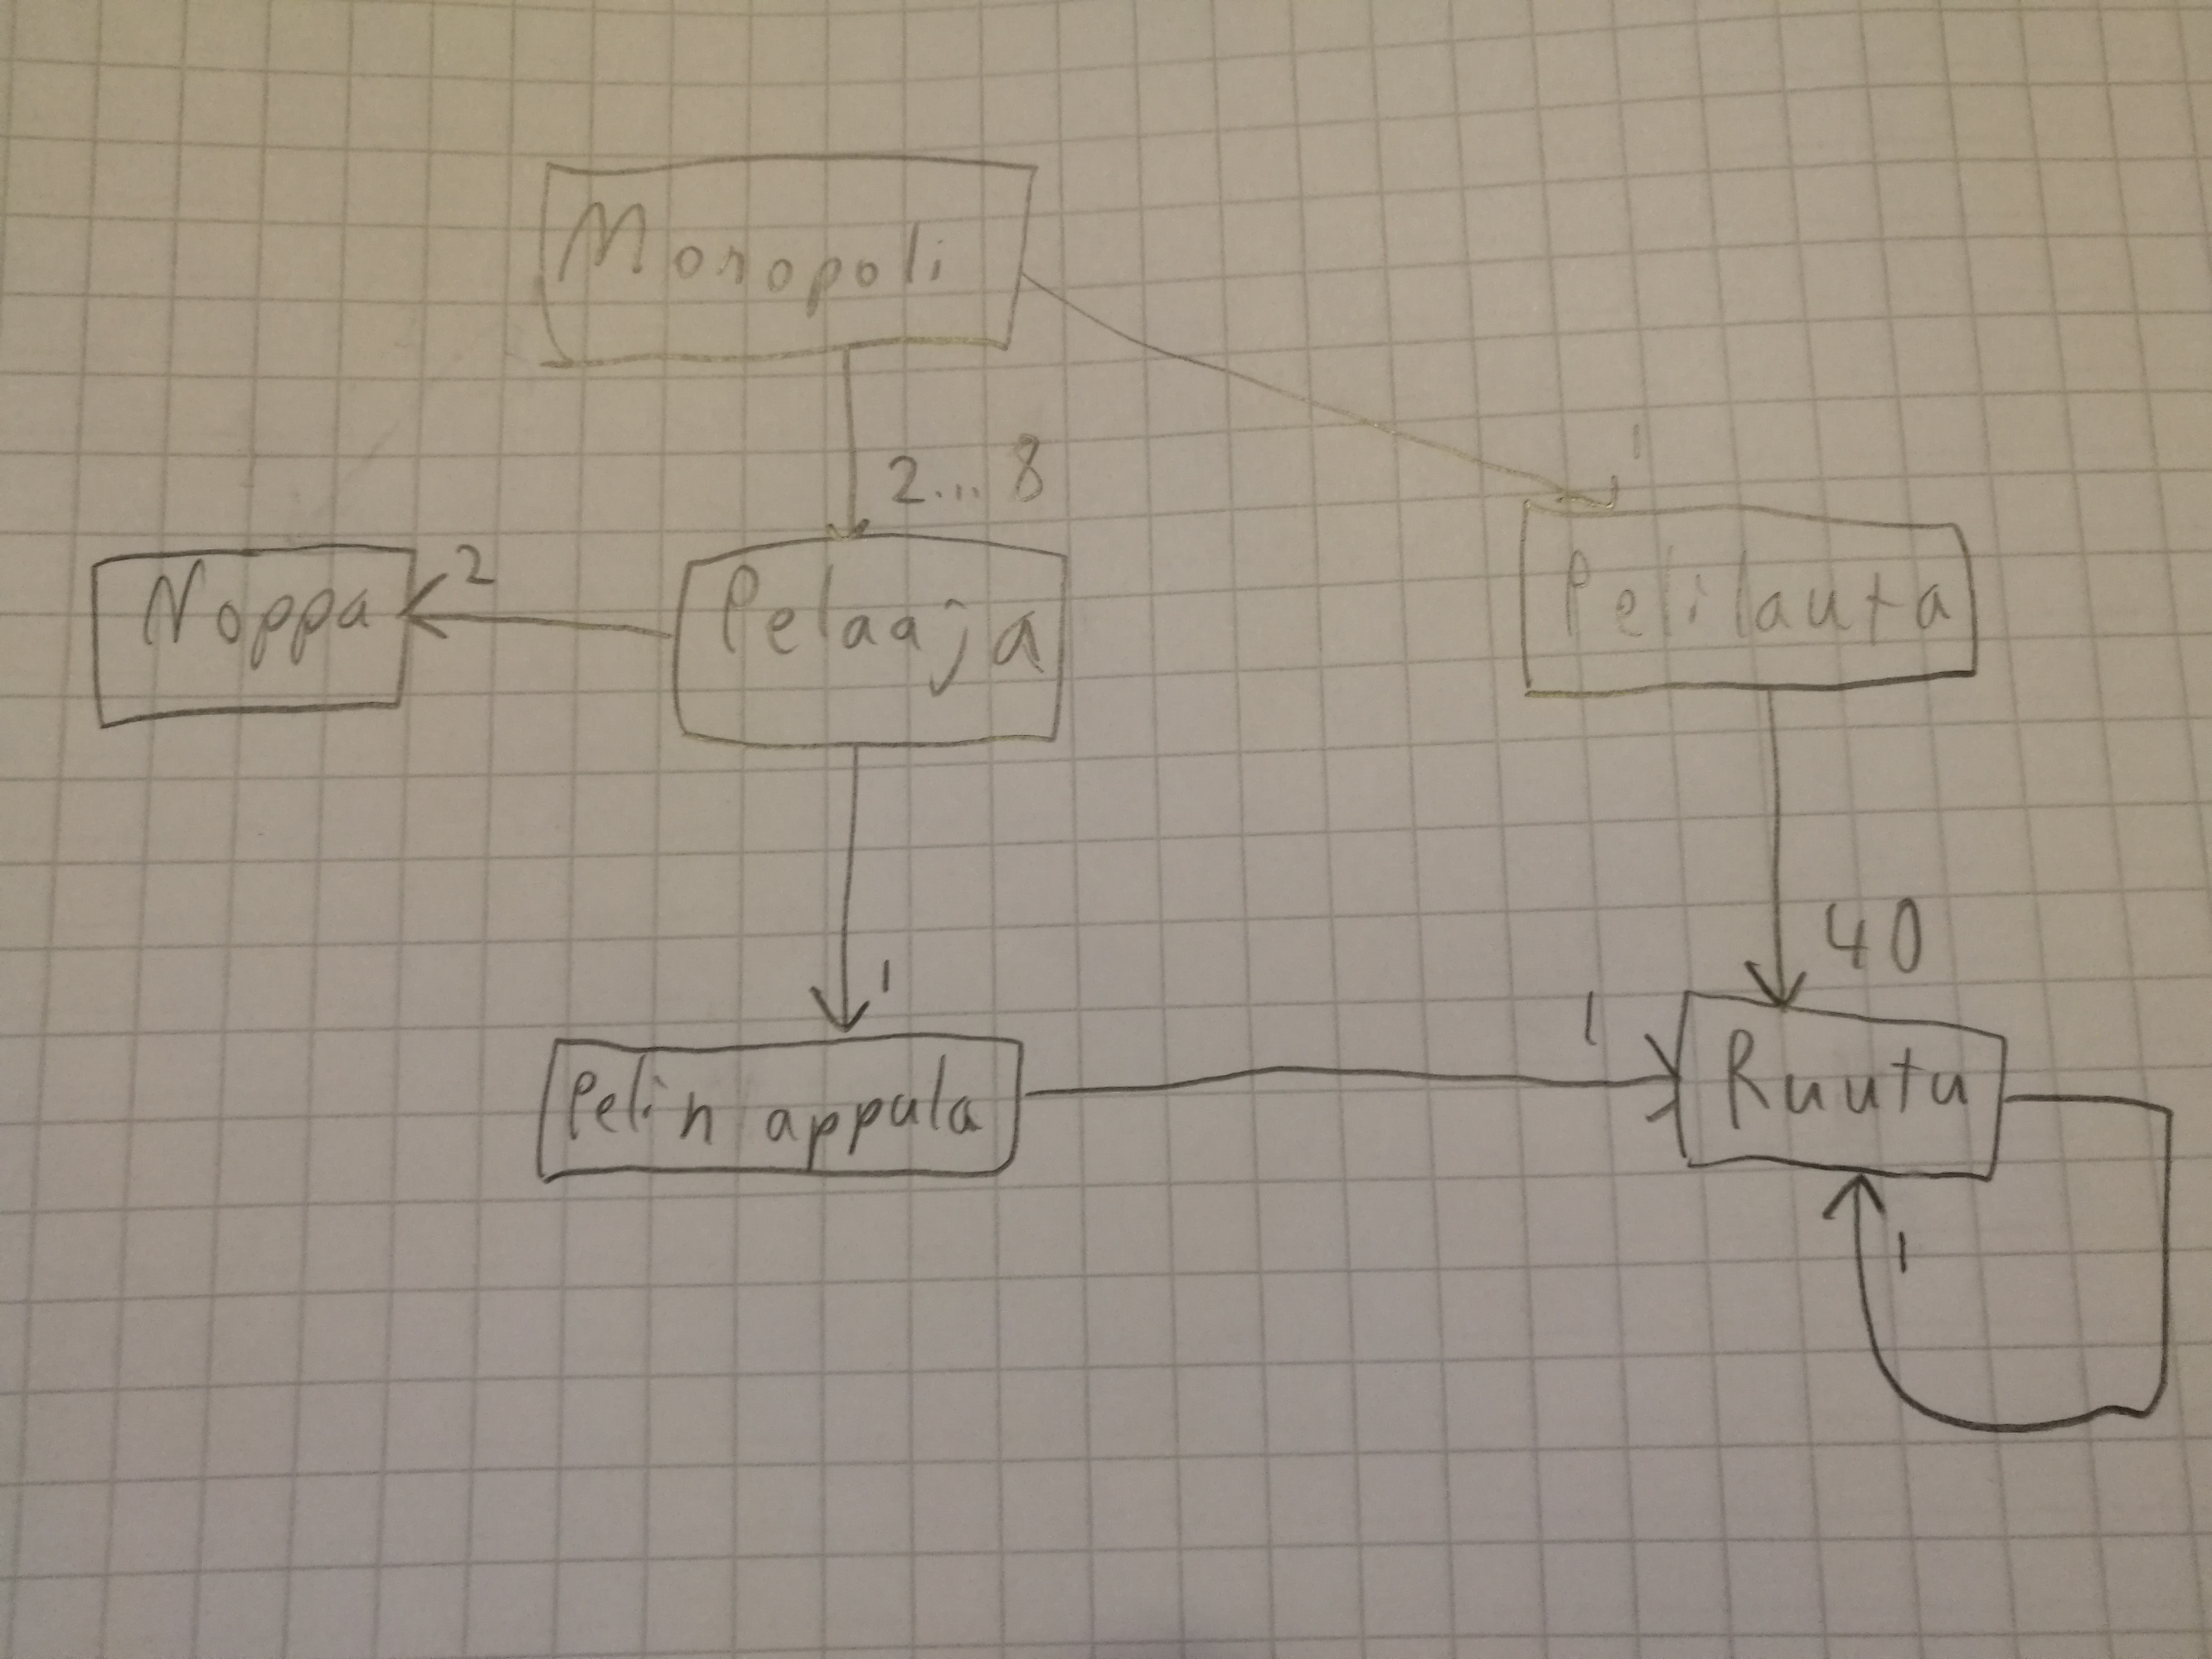 Monopoli
2...8
1
Noppa
2
Pelaaja
Pelilauta
1
40
Pelin appula
1
Ruutu
1